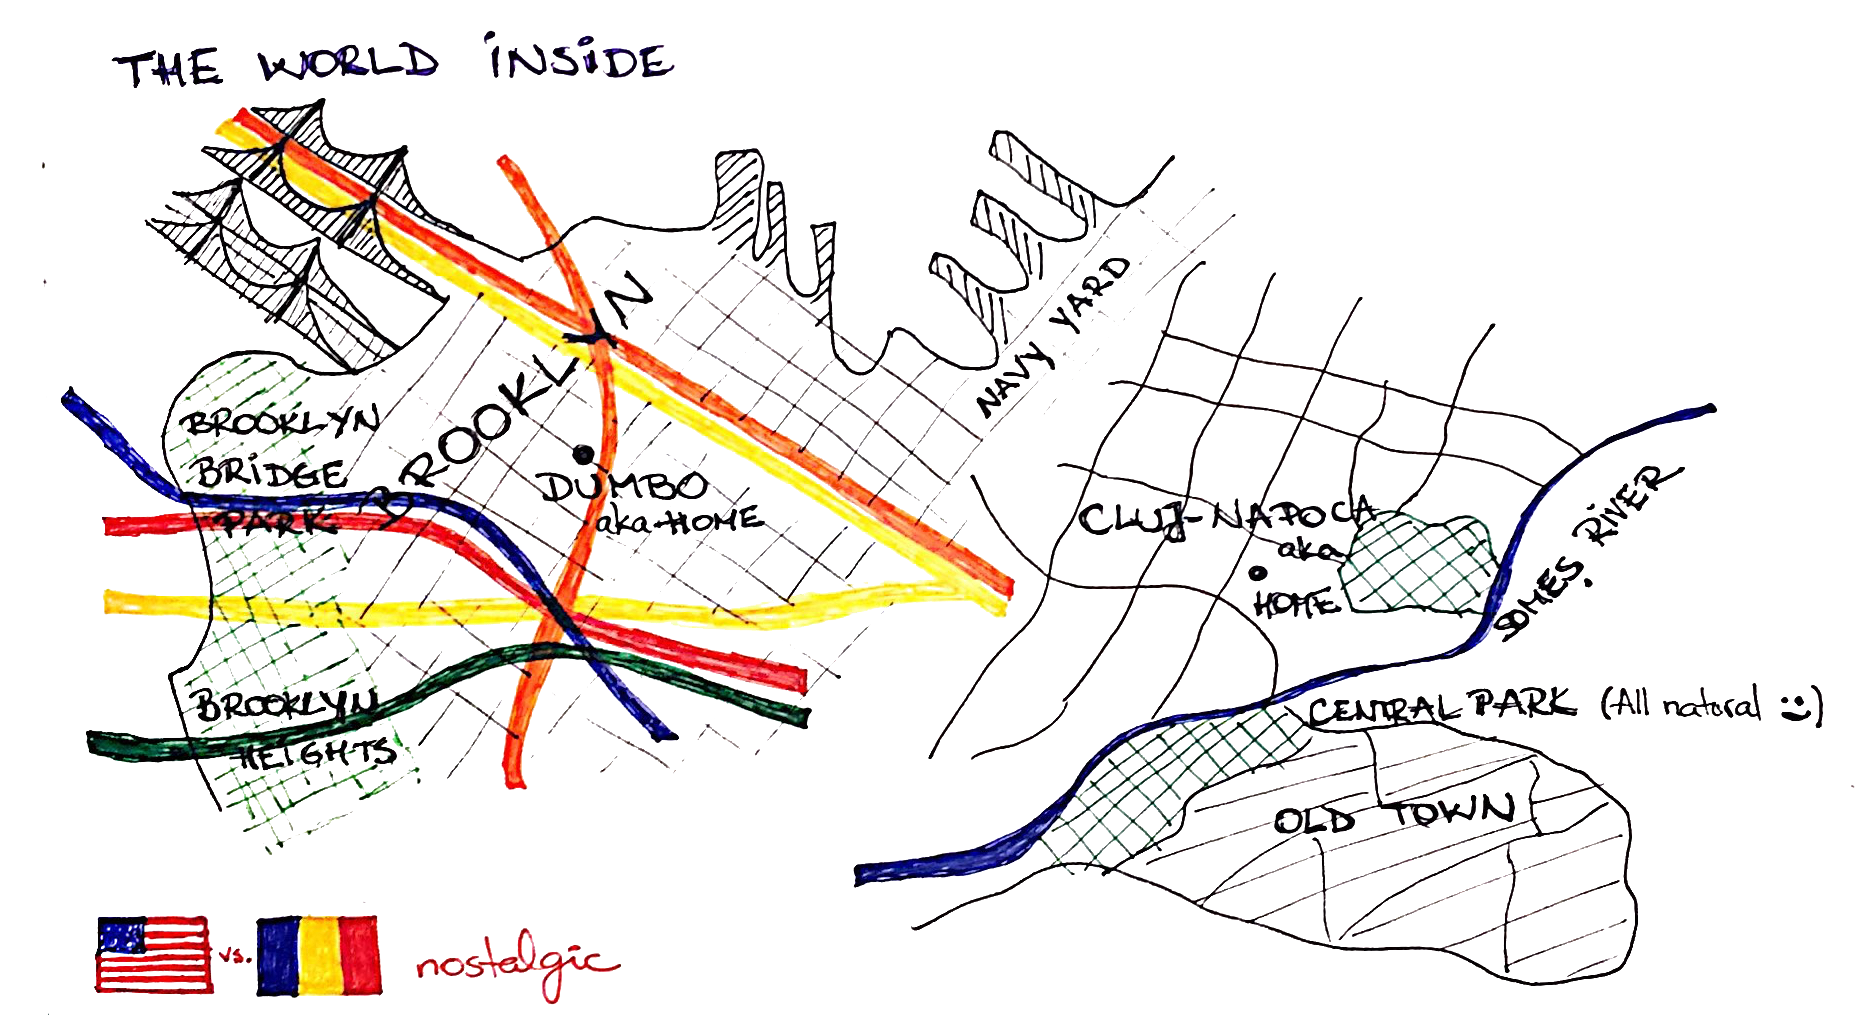 THE WORLD INSIDE
BROOKLYN
NAVY YARD
BROOKLYN
BRIDGE
PARK
DUMBO
aka HOME
BROOKLYN
HEIGHTS
CLUJ-NAPOCA
aka
HOME
SOMES. RIVER
CENTRAL PARK (All natural :))
OLD TOWN
vs.
nostalgic